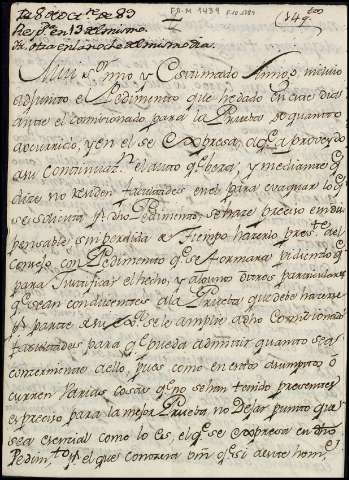 F.D.M 1439
De 8 de Oct.re de 89
Resp.da en 13 del mismo.
otra en la noche del mismo dia.
Mui s.r mio y Estimado Amigo, incluio
adjunto el Pedimento que he dado en este dia
ante el comisionado para la Prueba de quanto
a ocurrido, y en el se expresa, a q.e a proveydo
a su continuaz.n el auto q.e bera; y mediante q.e
dice no residen facultades en el para evaquar lo q.e
se solicita p.r dho Pedimento, se haze preciso e indis
pensable, sin perdida de tiempo hazerlo pres.te al
consejo con Pedimento q.e se formara pidiendo q.e
para Justificar el hecho, y algunos otros particulares
q.e sean conducentes a la Prueba que debe hazerse
p.r parte de su se le amplie a dho comisionado
facultades para q.e pueda admitir quanto sea
concerniente a ello, pues como en estos asumptos o
curren varias cosas q.e no se han tenido presentes
es preciso para la mejor Prueba no Dejar punto que
sea esencial como lo es, el q.e se expresa en dho
Pedim.to p.r el que conocera vm q.e si de este